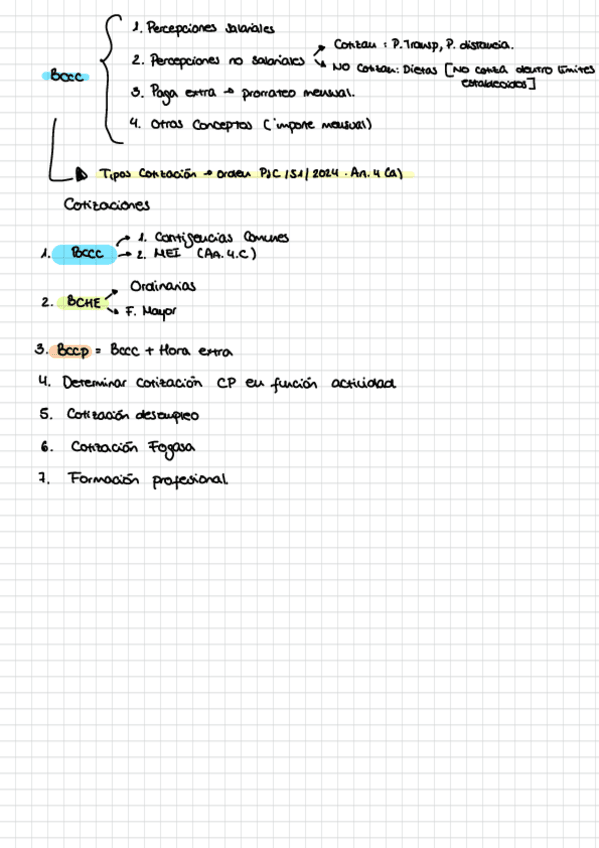 1. Percepciones salariales
2. Percepciones no salariales
Cotizan : P. Transp, P. distancia.
NO Cotizan: Dietas [No cotiza dentro límites establecidos]
Bccc
3. Paga extra → prorrateo mensual.
4. Otros Conceptos (importe mensual)
Tipos Cotización → Orden PJC /51/ 2024 . An. 4 (a)
Cotizaciones
1. Bccc
1. Contigencias Comunes
2. MEI (An. 4.C)
2. BCHE
Ordinarias
F. Mayor
3. Bccp = Bccc + Hora extra
4. Determinar cotización CP en función actividad
5. Cotización desempleo
6. Cotización Fogasa
7. Formación profesional